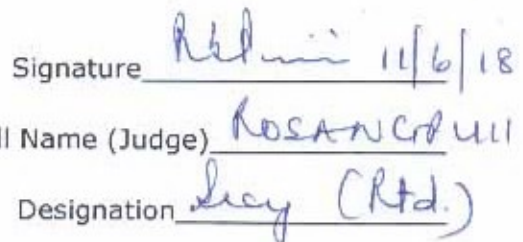 Signature 11/6/18
ll Name (Judge)
Designation Secy (Rtd.)